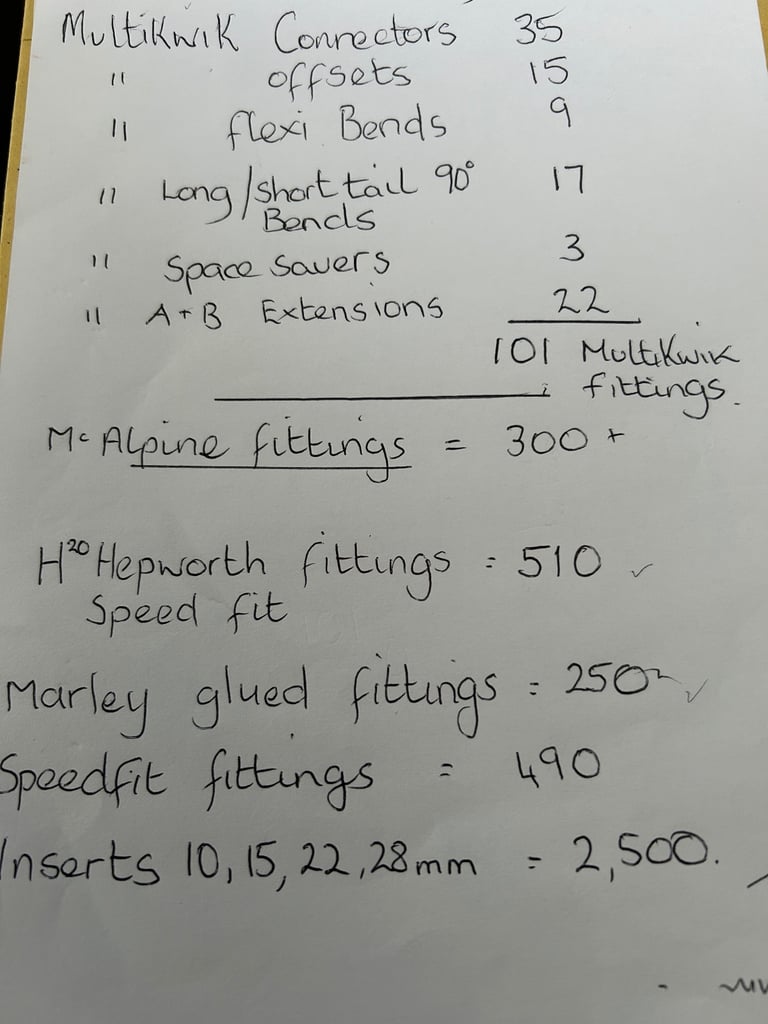 Multikwik Connectors 35
" offsets 15
" flexi Bends 9
" Long/Short tail 90° 17
Bends
" Space Savers 3
" A+B Extensions 22
101 Multikwik
fittings.
Mc Alpine fittings = 300+
H20 Hepworth fittings = 510 ✓
Speed fit
Marley glued fittings = 250 ✓
Speedfit fittings = 490
Inserts 10, 15, 22, 28mm = 2,500.